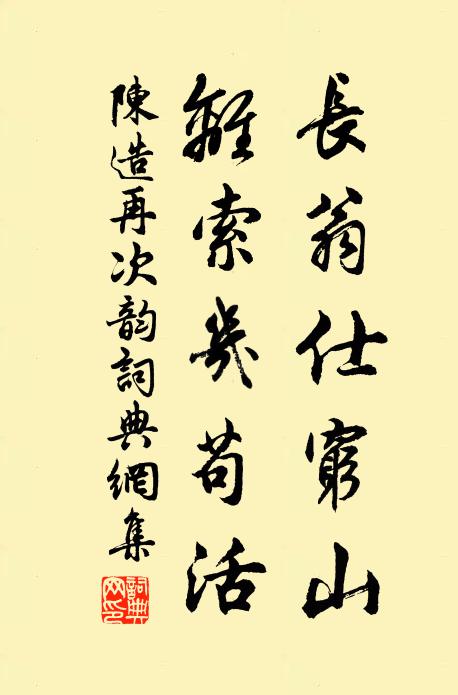 長翁仕窮山
離索幾苟活
陳造再次韵詞典網集
詞典网印